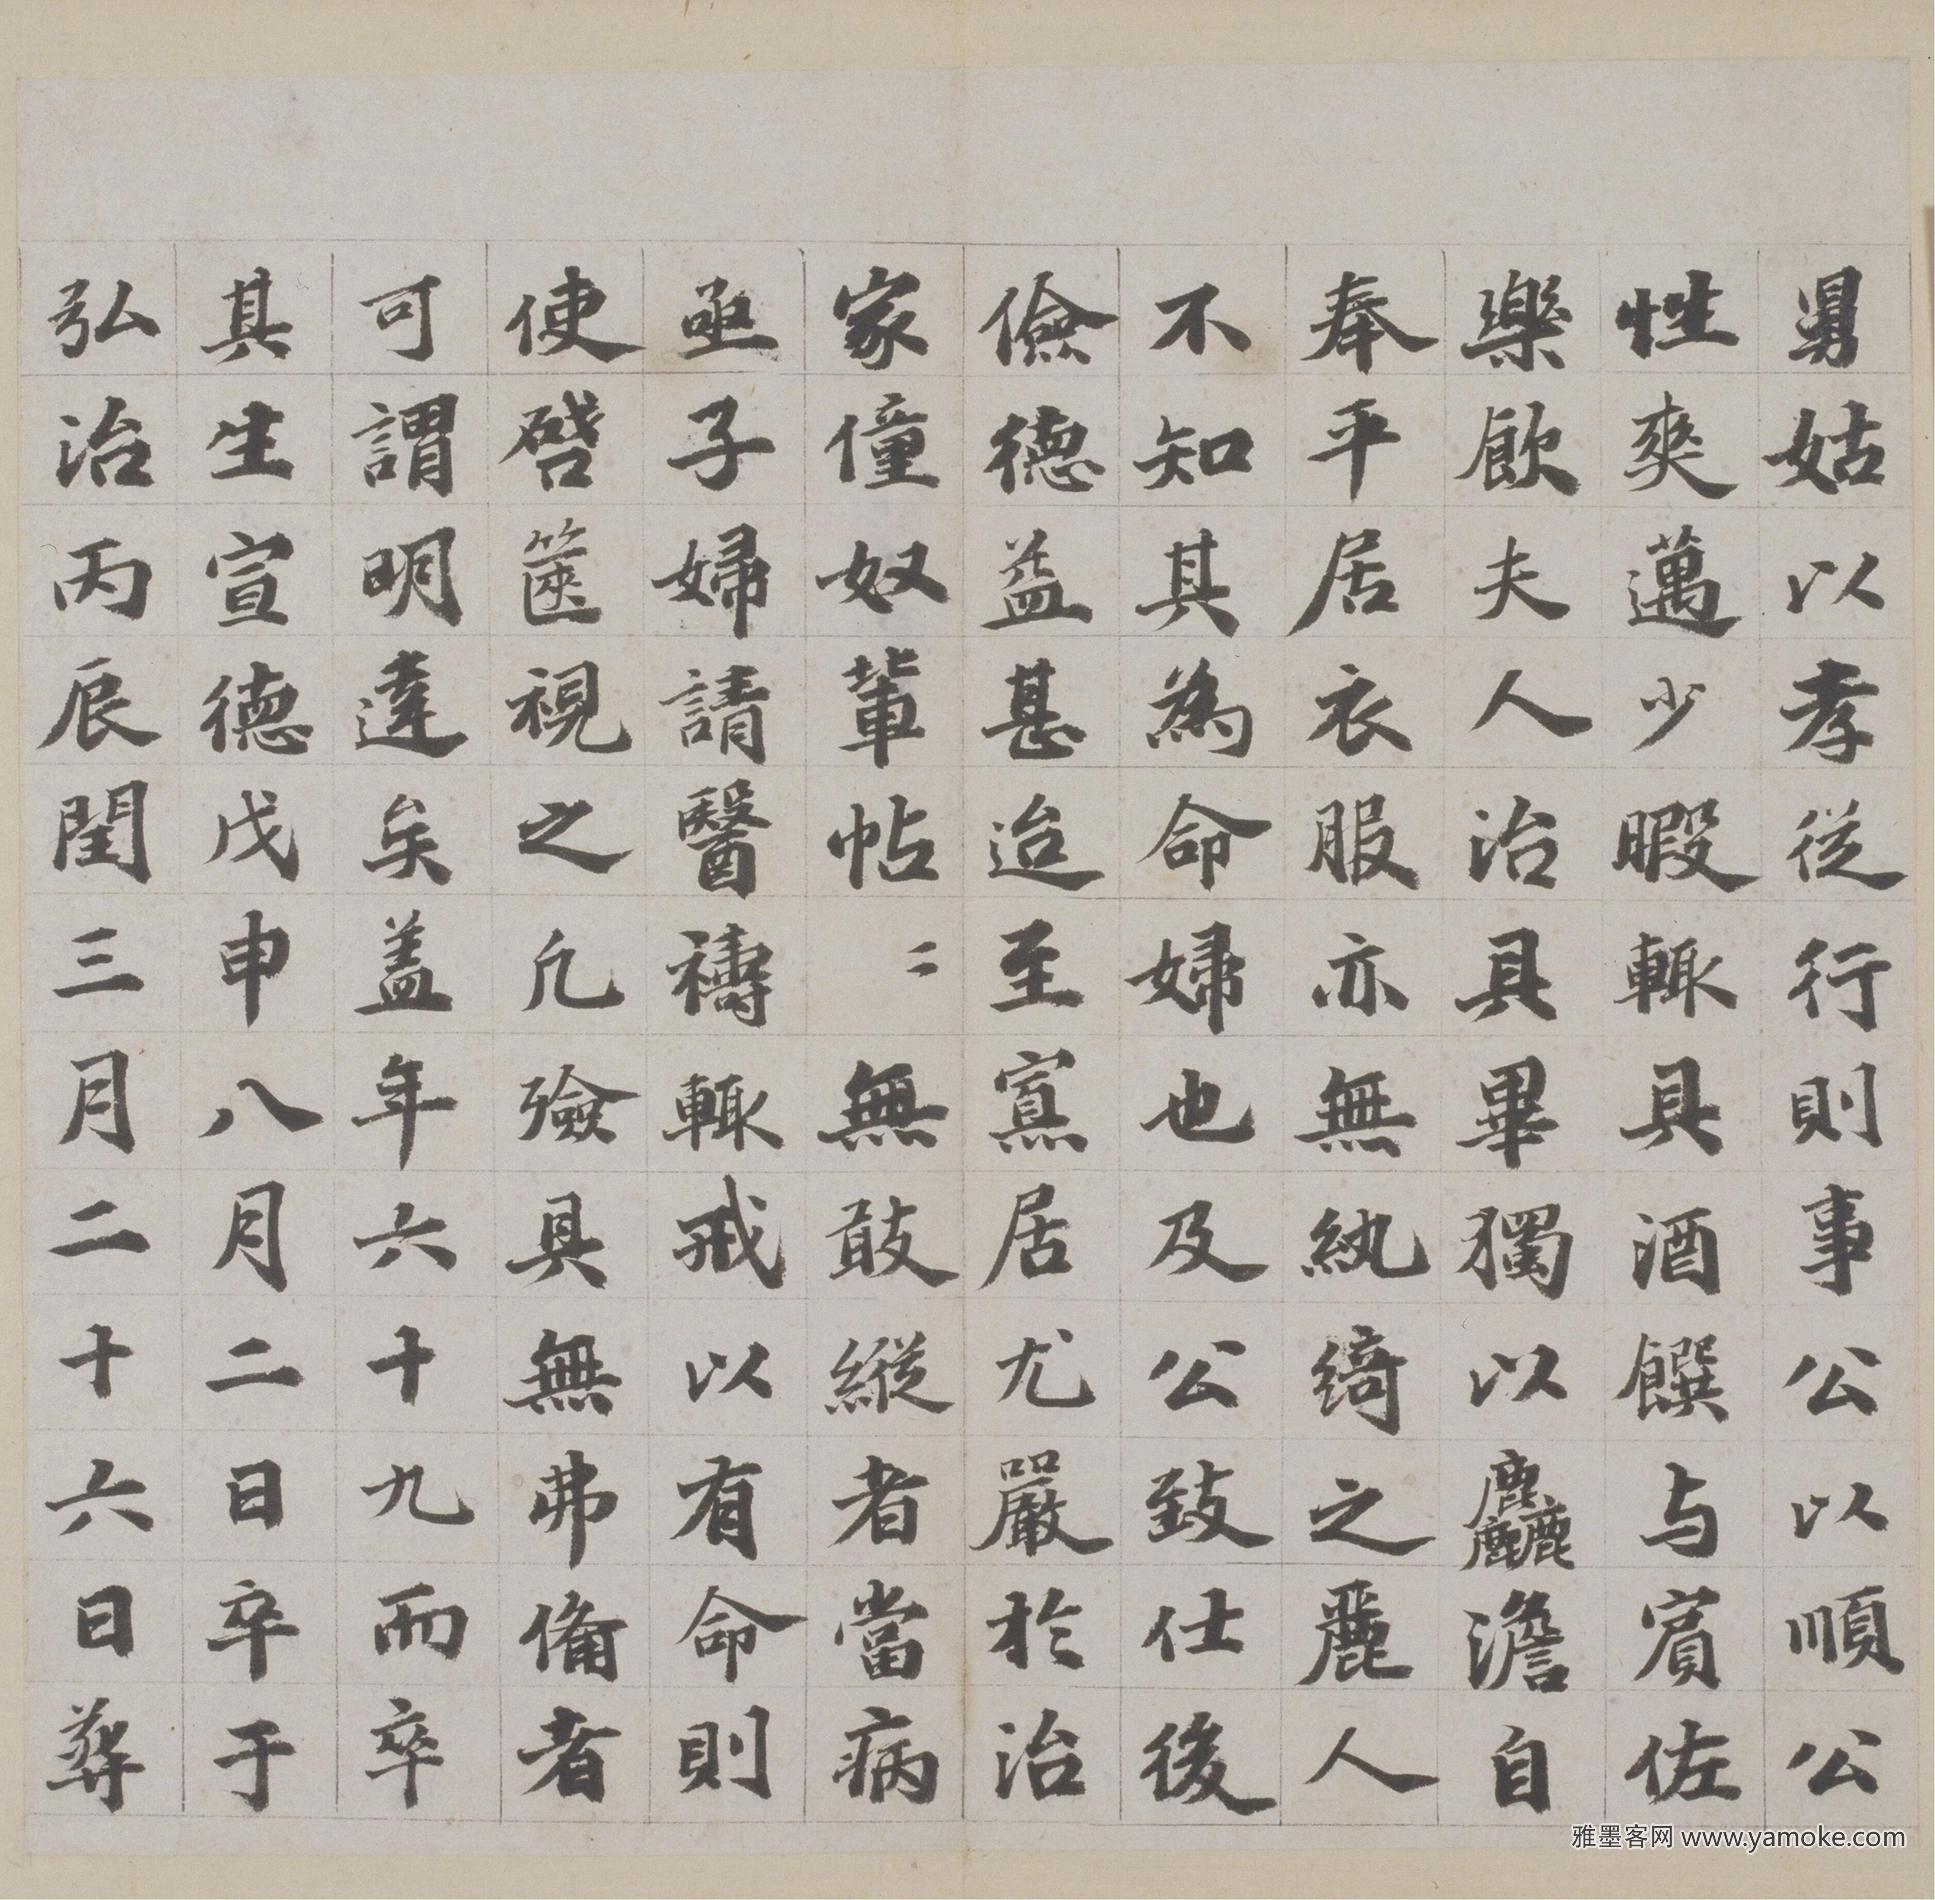 舅姑以孝從行則事公以順公
性爽邁少暇輒具酒饌与賓佐
樂飲夫人治具畢獨以麤澹自
奉平居衣服亦無紈綺之麗人
不知其為命婦也及公致仕後
儉德益甚迨至寡居尤嚴於治
家僮奴輩帖〻無敢縱者當病
亟子婦請醫禱輒戒以有命則
使啓篋視之凡殮具無弗備者
可謂明達矣蓋年六十九而卒
其生宣德戊申八月二日卒于
弘治丙辰閏三月二十六日葬
雅墨客网 www.yamoke.com